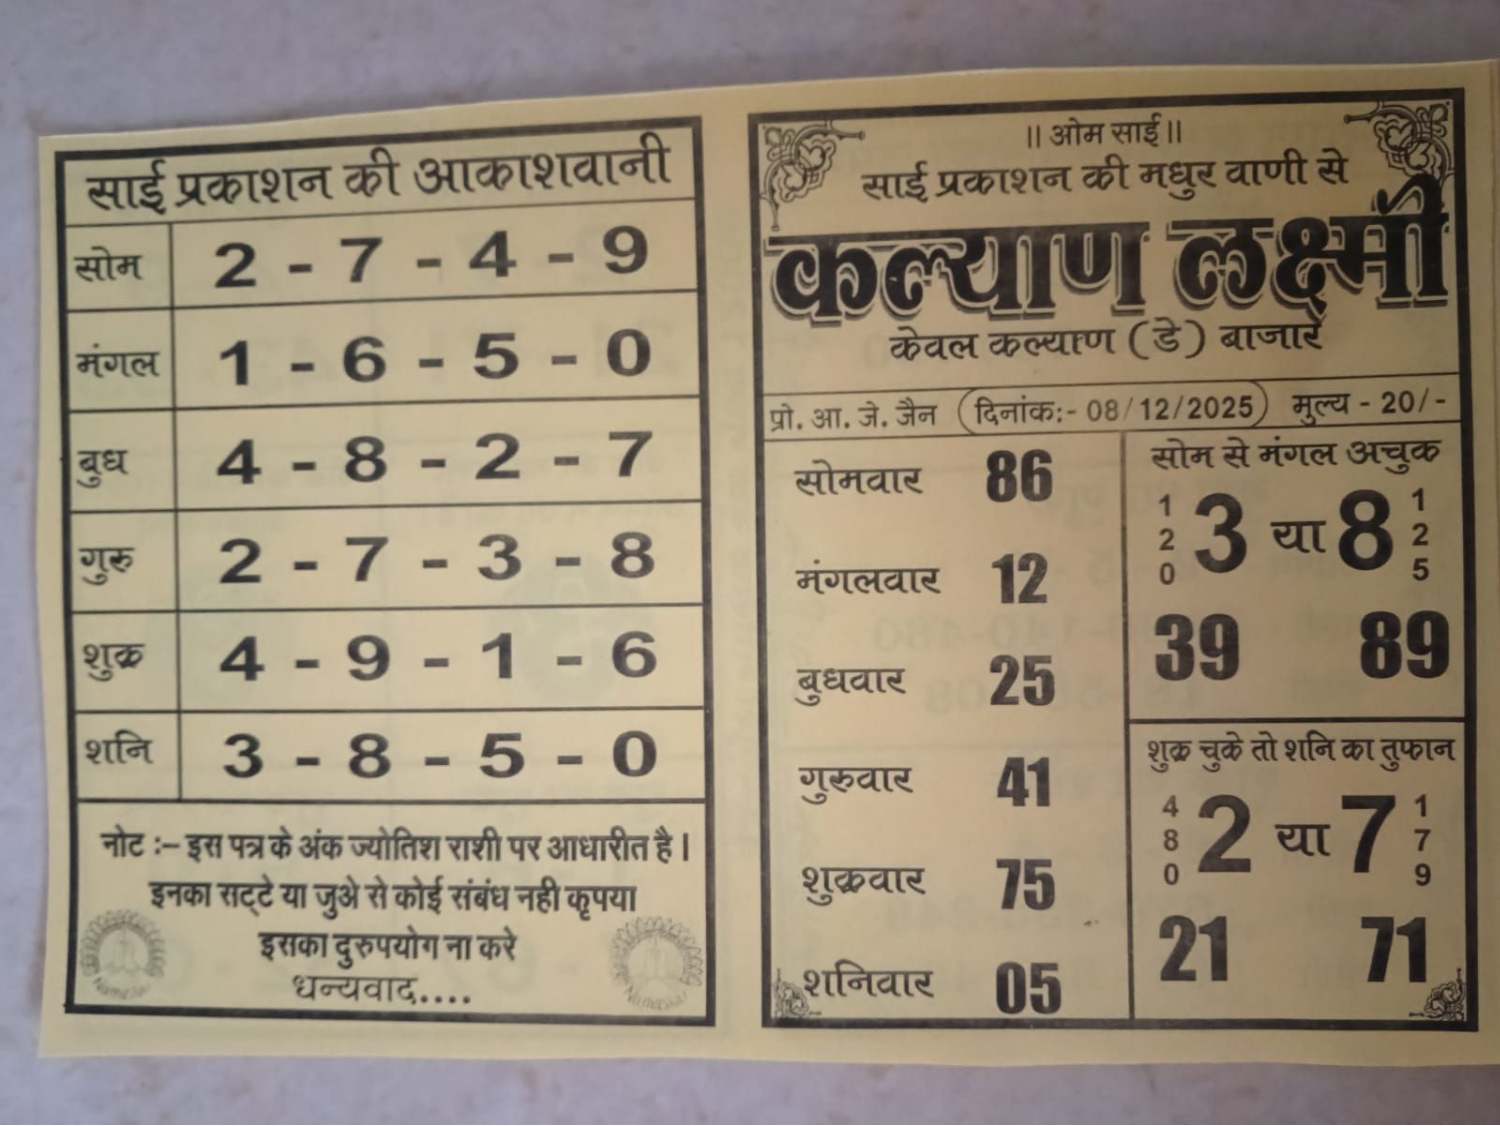 साई प्रकाशन की आकाशवानी
सोम 2 - 7 - 4 - 9
मंगल 1 - 6 - 5 - 0
बुध 4 - 8 - 2 - 7
गुरु 2 - 7 - 3 - 8
शुक्र 4 - 9 - 1 - 6
शनि 3 - 8 - 5 - 0
नोट :– इस पत्र के अंक ज्योतिश राशी पर आधारीत है ।
इनका सट्टे या जुअे से कोई संबंध नही कृपया
इसका दुरुपयोग ना करे
धन्यवाद....
Namaskar
Namaskar
॥ ओम साई ॥
साई प्रकाशन की मधुर वाणी से
कल्याण लक्ष्मी
केवल कल्याण (डे) बाजार
प्रो. आ. जे. जैन (दिनांक:- 08/12/2025) मुल्य - 20/-
सोमवार 86
मंगलवार 12
बुधवार 25
गुरुवार 41
शुक्रवार 75
शनिवार 05
सोम से मंगल अचुक
120 3 या 8 125
39 89
शुक्र चुके तो शनि का तुफान
480 2 या 7 179
21 71